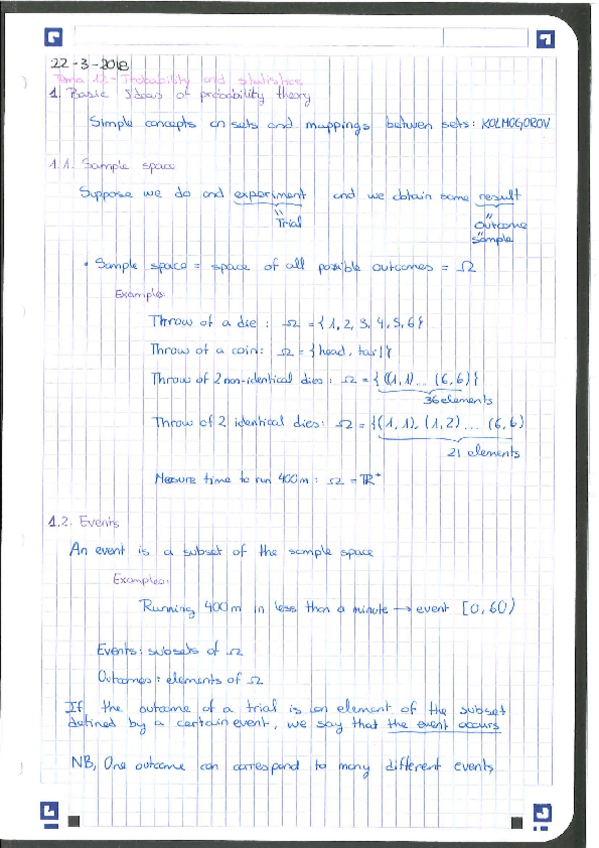 22-3-2018
Tema 12-Probability and statistics
1. Basic Ideas of probability theory
Simple concepts on sets and mappings between sets: KOLMOGOROV
1.1. Sample space
Suppose we do and experiment and we obtain some result
"
Trial
"
outcome
"
sample
• Sample space = space of all possible outcomes = Ω
Examples:
Throw of a die: Ω = {1, 2, 3, 4, 5, 6}
Throw of a coin: Ω = {head, tail}
Throw of 2 non-identical dies: Ω = {(1,1)... (6,6)}
36 elements
Throw of 2 identical dies: Ω = {(1,1), (1,2) ... (6,6)
21 elements
Measure time to run 400m: Ω = ℝ⁺
1.2. Events
An event is a subset of the sample space
Examples:
Running 400m in less than a minute → event [0,60)
Events: subsets of Ω
Outcomes: elements of Ω
If the outcome of a trial is an element of the subset
defined by a certain event, we say that the event occurs
NB, One outcome can correspond to many different events